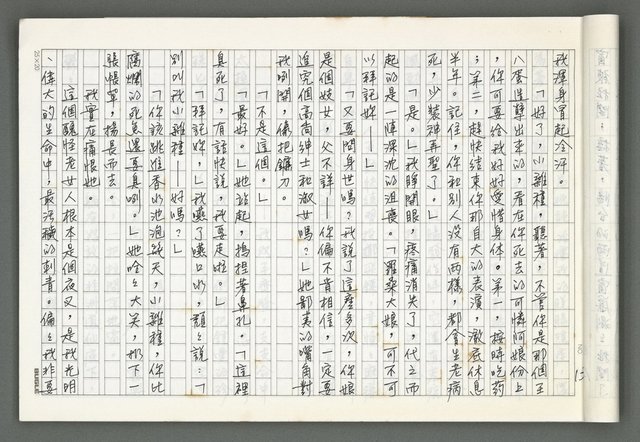 我渾身冒起冷汗。
「好了，小雜種，聽著，不管你是那個王
八蛋造孽出來的，看在你死去的可憐阿娘份上
，你可要給我好好愛惜身體。第一，按時吃药
；第二，趕快結束你那自大的表演，澈底休息
半年。記住，你和别人沒有兩樣，都會生老病
死，少裝神弄聖了。」
「是。」我睜開眼，疼痛消失了，代之而
起的是一陣深沈的沮喪。「羅桑大娘，可不可
以拜託妳——」
「又要問身世嗎？我說了這麼多次，你娘
是個妓女，父不詳——你偏不肯相信，一定要
追究個高尚紳士和淑女嗎？」她鄙夷的嘴角對
我咧開，像把鐮刀。
「不是這個。」
「最好。」她站起，搗扭著鼻孔。「這裡
臭死了，有話快說，我要走啦。」
「拜託妳，」我嚥了嚥口水，頹頹說：「
別叫我小雜種——好嗎？」
「你該跳進香水池泡幾天，小雜種，你比
腐爛的死魚還要臭咧。」她哈哈大笑，扔下一
張帳單，揚長而去。
我實在痛恨她。
這個醜怪老女人根本是個夜叉，是我光明
、偉大的生命中，最污穢的刺青。偏偏我非要
25×20